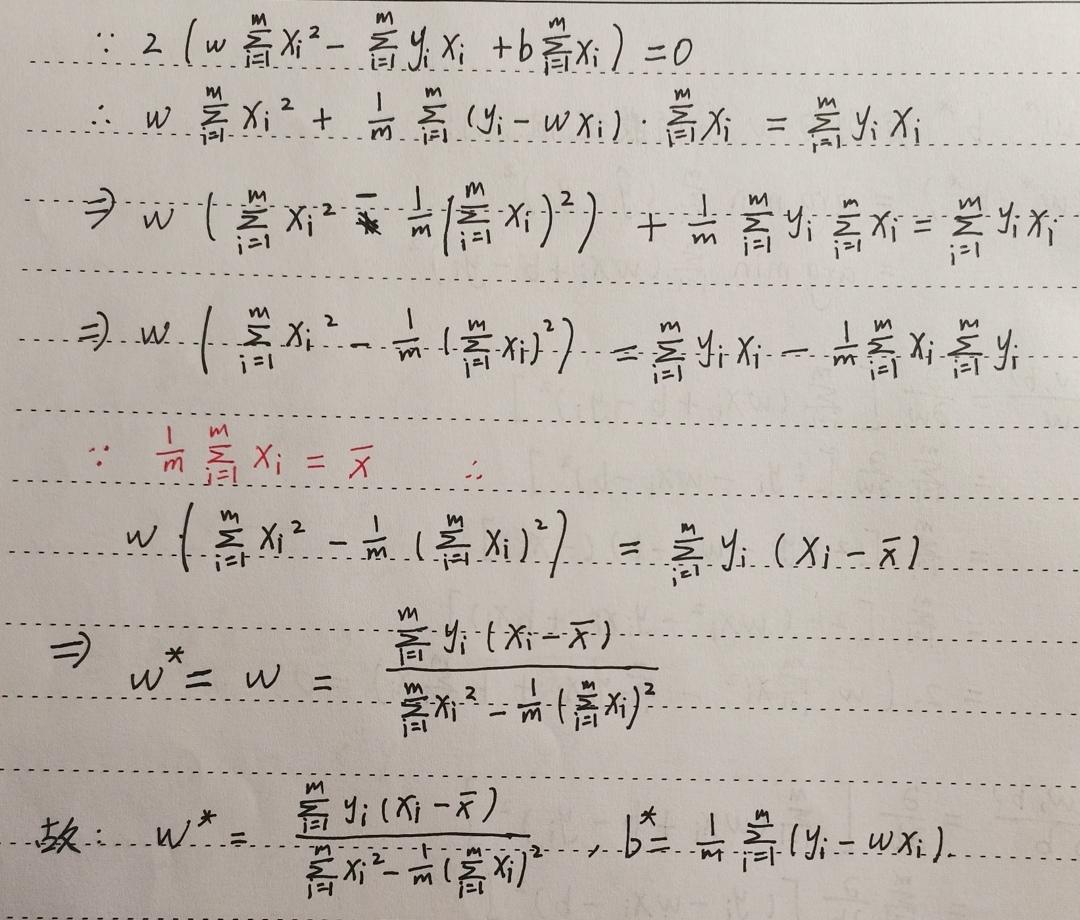 ∵ 2 ( w ∑_{i=1}^{m} x_i² − ∑_{i=1}^{m} y_i x_i + b ∑_{i=1}^{m} x_i ) = 0
∴ w ∑_{i=1}^{m} x_i² + 1/m ∑_{i=1}^{m} (y_i − w x_i) · ∑_{i=1}^{m} x_i = ∑_{i=1}^{m} y_i x_i
⇒ w ( ∑_{i=1}^{m} x_i² − 1/m (∑_{i=1}^{m} x_i)² ) + 1/m ∑_{i=1}^{m} y_i ∑_{i=1}^{m} x_i = ∑_{i=1}^{m} y_i x_i
⇒ w ( ∑_{i=1}^{m} x_i² − 1/m (∑_{i=1}^{m} x_i)² ) = ∑_{i=1}^{m} y_i x_i − 1/m ∑_{i=1}^{m} x_i ∑_{i=1}^{m} y_i
∵ 1/m ∑_{i=1}^{m} x_i = x̄ ∴
w ( ∑_{i=1}^{m} x_i² − 1/m (∑_{i=1}^{m} x_i)² ) = ∑_{i=1}^{m} y_i (x_i − x̄)
⇒ w* = w = ∑_{i=1}^{m} y_i (x_i − x̄) / ( ∑_{i=1}^{m} x_i² − 1/m (∑_{i=1}^{m} x_i)² )
故: w* = ∑_{i=1}^{m} y_i (x_i − x̄) / ( ∑_{i=1}^{m} x_i² − 1/m (∑_{i=1}^{m} x_i)² ) , b* = 1/m ∑_{i=1}^{m} (y_i − w x_i).